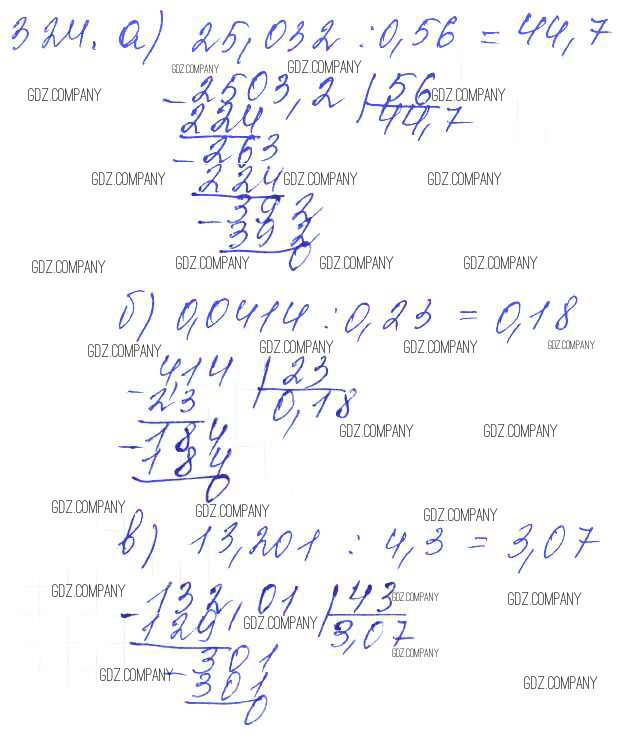 324. а) 25,032 : 0,56 = 44,7
GDZ.COMPANY GDZ.COMPANY
- 2503,2 | 56
GDZ.COMPANY GDZ.COMPANY
224 44,7
- 263
GDZ.COMPANY GDZ.COMPANY GDZ.COMPANY
224
- 392
392
GDZ.COMPANY GDZ.COMPANY GDZ.COMPANY GDZ.COMPANY
0
б) 0,0414 : 0,23 = 0,18
GDZ.COMPANY GDZ.COMPANY GDZ.COMPANY GDZ.COMPANY
- 4,14 | 23
23 0,18
GDZ.COMPANY GDZ.COMPANY
- 184
184
0
GDZ.COMPANY GDZ.COMPANY GDZ.COMPANY
в) 13,201 : 4,3 = 3,07
GDZ.COMPANY GDZ.COMPANY GDZ.COMPANY
- 132,01 | 43
129 3,07
GDZ.COMPANY GDZ.COMPANY
- 301
GDZ.COMPANY GDZ.COMPANY
301
0